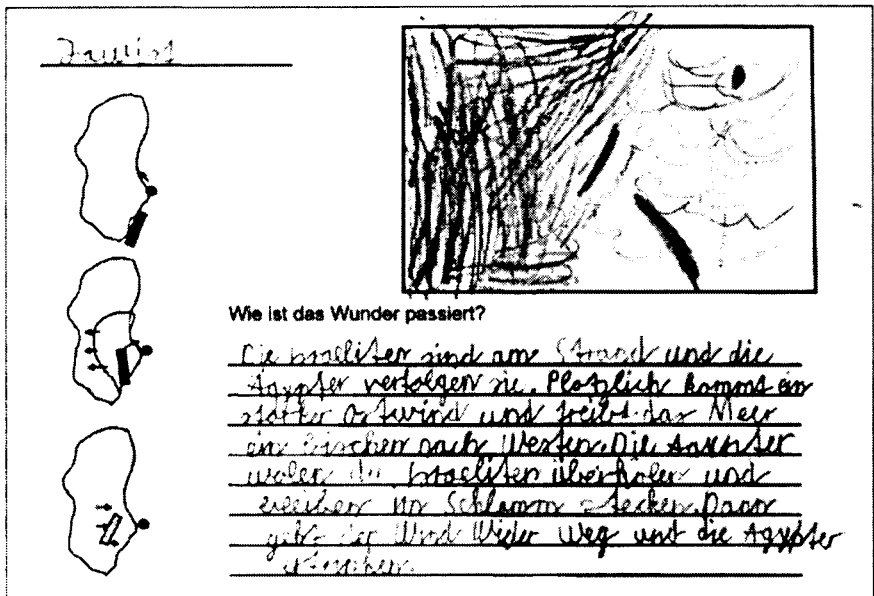 Jawist
Wie ist das Wunder passiert?
Die Israeliten sind am Strand und die
Ägypter verfolgen sie. Plotzlich kommt ein
starker Ostwind und treibt das Meer
ein bischen nach Westen. Die
wolen die Israeliten überholen und
bleiben im Schlamm stecken. Dann
geht der Wind Wider Weg und die Ägypter